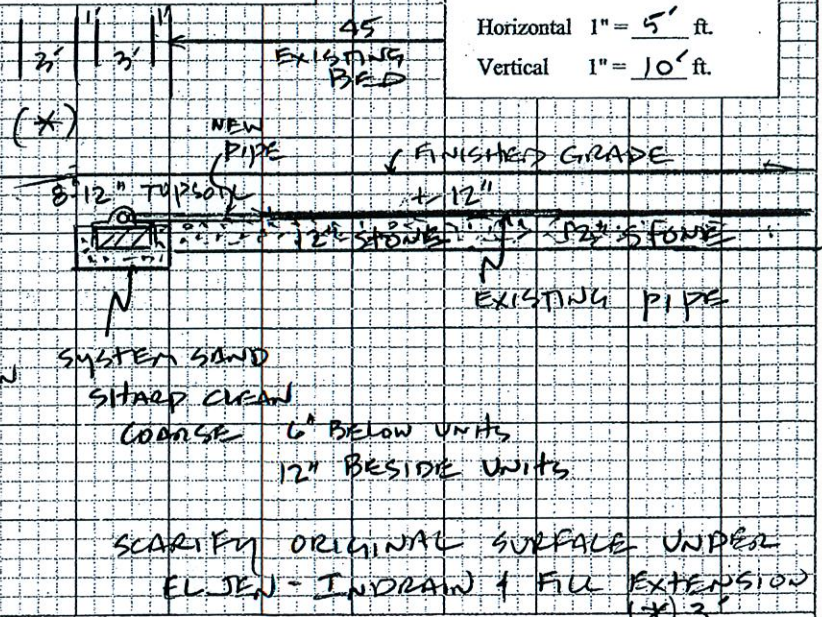 Horizontal 1" = 5' ft.
Vertical 1" = 10' ft.
1' 1'
3' 3'
45
EXISTING
BED
(*)
NEW
PIPE
FINISHED GRADE
8"12" TOPSOIL
± 12"
12" STONE
12" STONE
EXISTING PIPE
SYSTEM SAND
SHARP CLEAN
COARSE 6" BELOW UNITS
12" BESIDE UNITS
SCARIFY ORIGINAL SURFACE UNDER
ELJEN - INDRAIN & FILL EXTENSION
(*) 3'